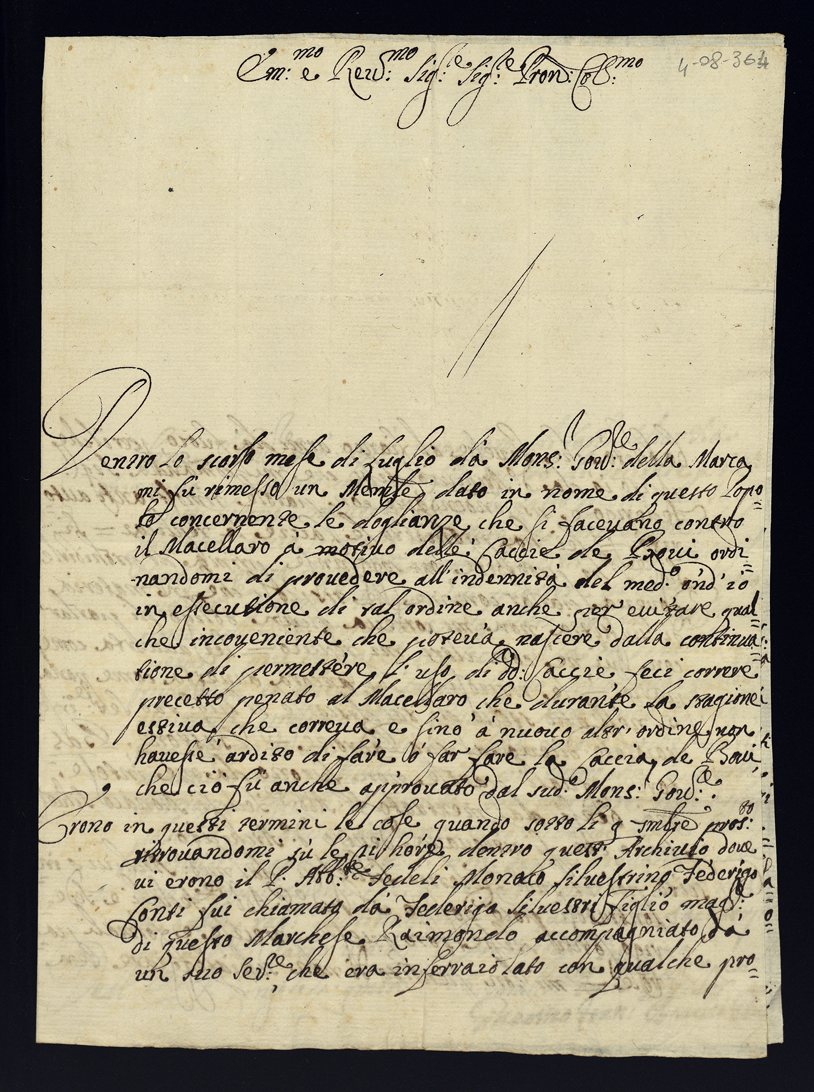 Em:mo e Reu:mo Sig:re Sig:re Pron: Col:mo
4-08-364
Dentro Lo scorso mese di Luglio dà Mons:r Gou:re della Marca
mi fù rimesso un Memle, dato in nome di questo Popo=
lo concernente le doglianze che si faceuano contro
il Macellaro à motiuo delle Caccie de Boui ordi=
nandomi di prouedere all'indennità del med:o ond'io
in essecutione di tal ordine anche per euitare qual=
che incoueniente che poteua nascere dalla continua=
tione di permettere l'uso di dd: Caccie feci correre
precetto penato al Macellaro che durante la stagione
estiua, che correua e sino à nuouo altr'ordine non
hauesse ardito di fare ò far fare la Caccia de Boui,
che ciò fù anche approuato dal sud:o Mons:r Gou:re.
Erono in questi termini le cose quando sotto li 9 smbre pros:to
ritrouandomi sù le hore dentro quest'Archiuio doue
ui erono il P. Abb:te Fedeli Monaco Siluestrino Federigo
Conti fui chiamato dà Federigo Siluestri figlio mag:re
di questo Marchese Raimondo accompagniato dà
un suo Ser:re, che era inferraiolato con qualche pro=